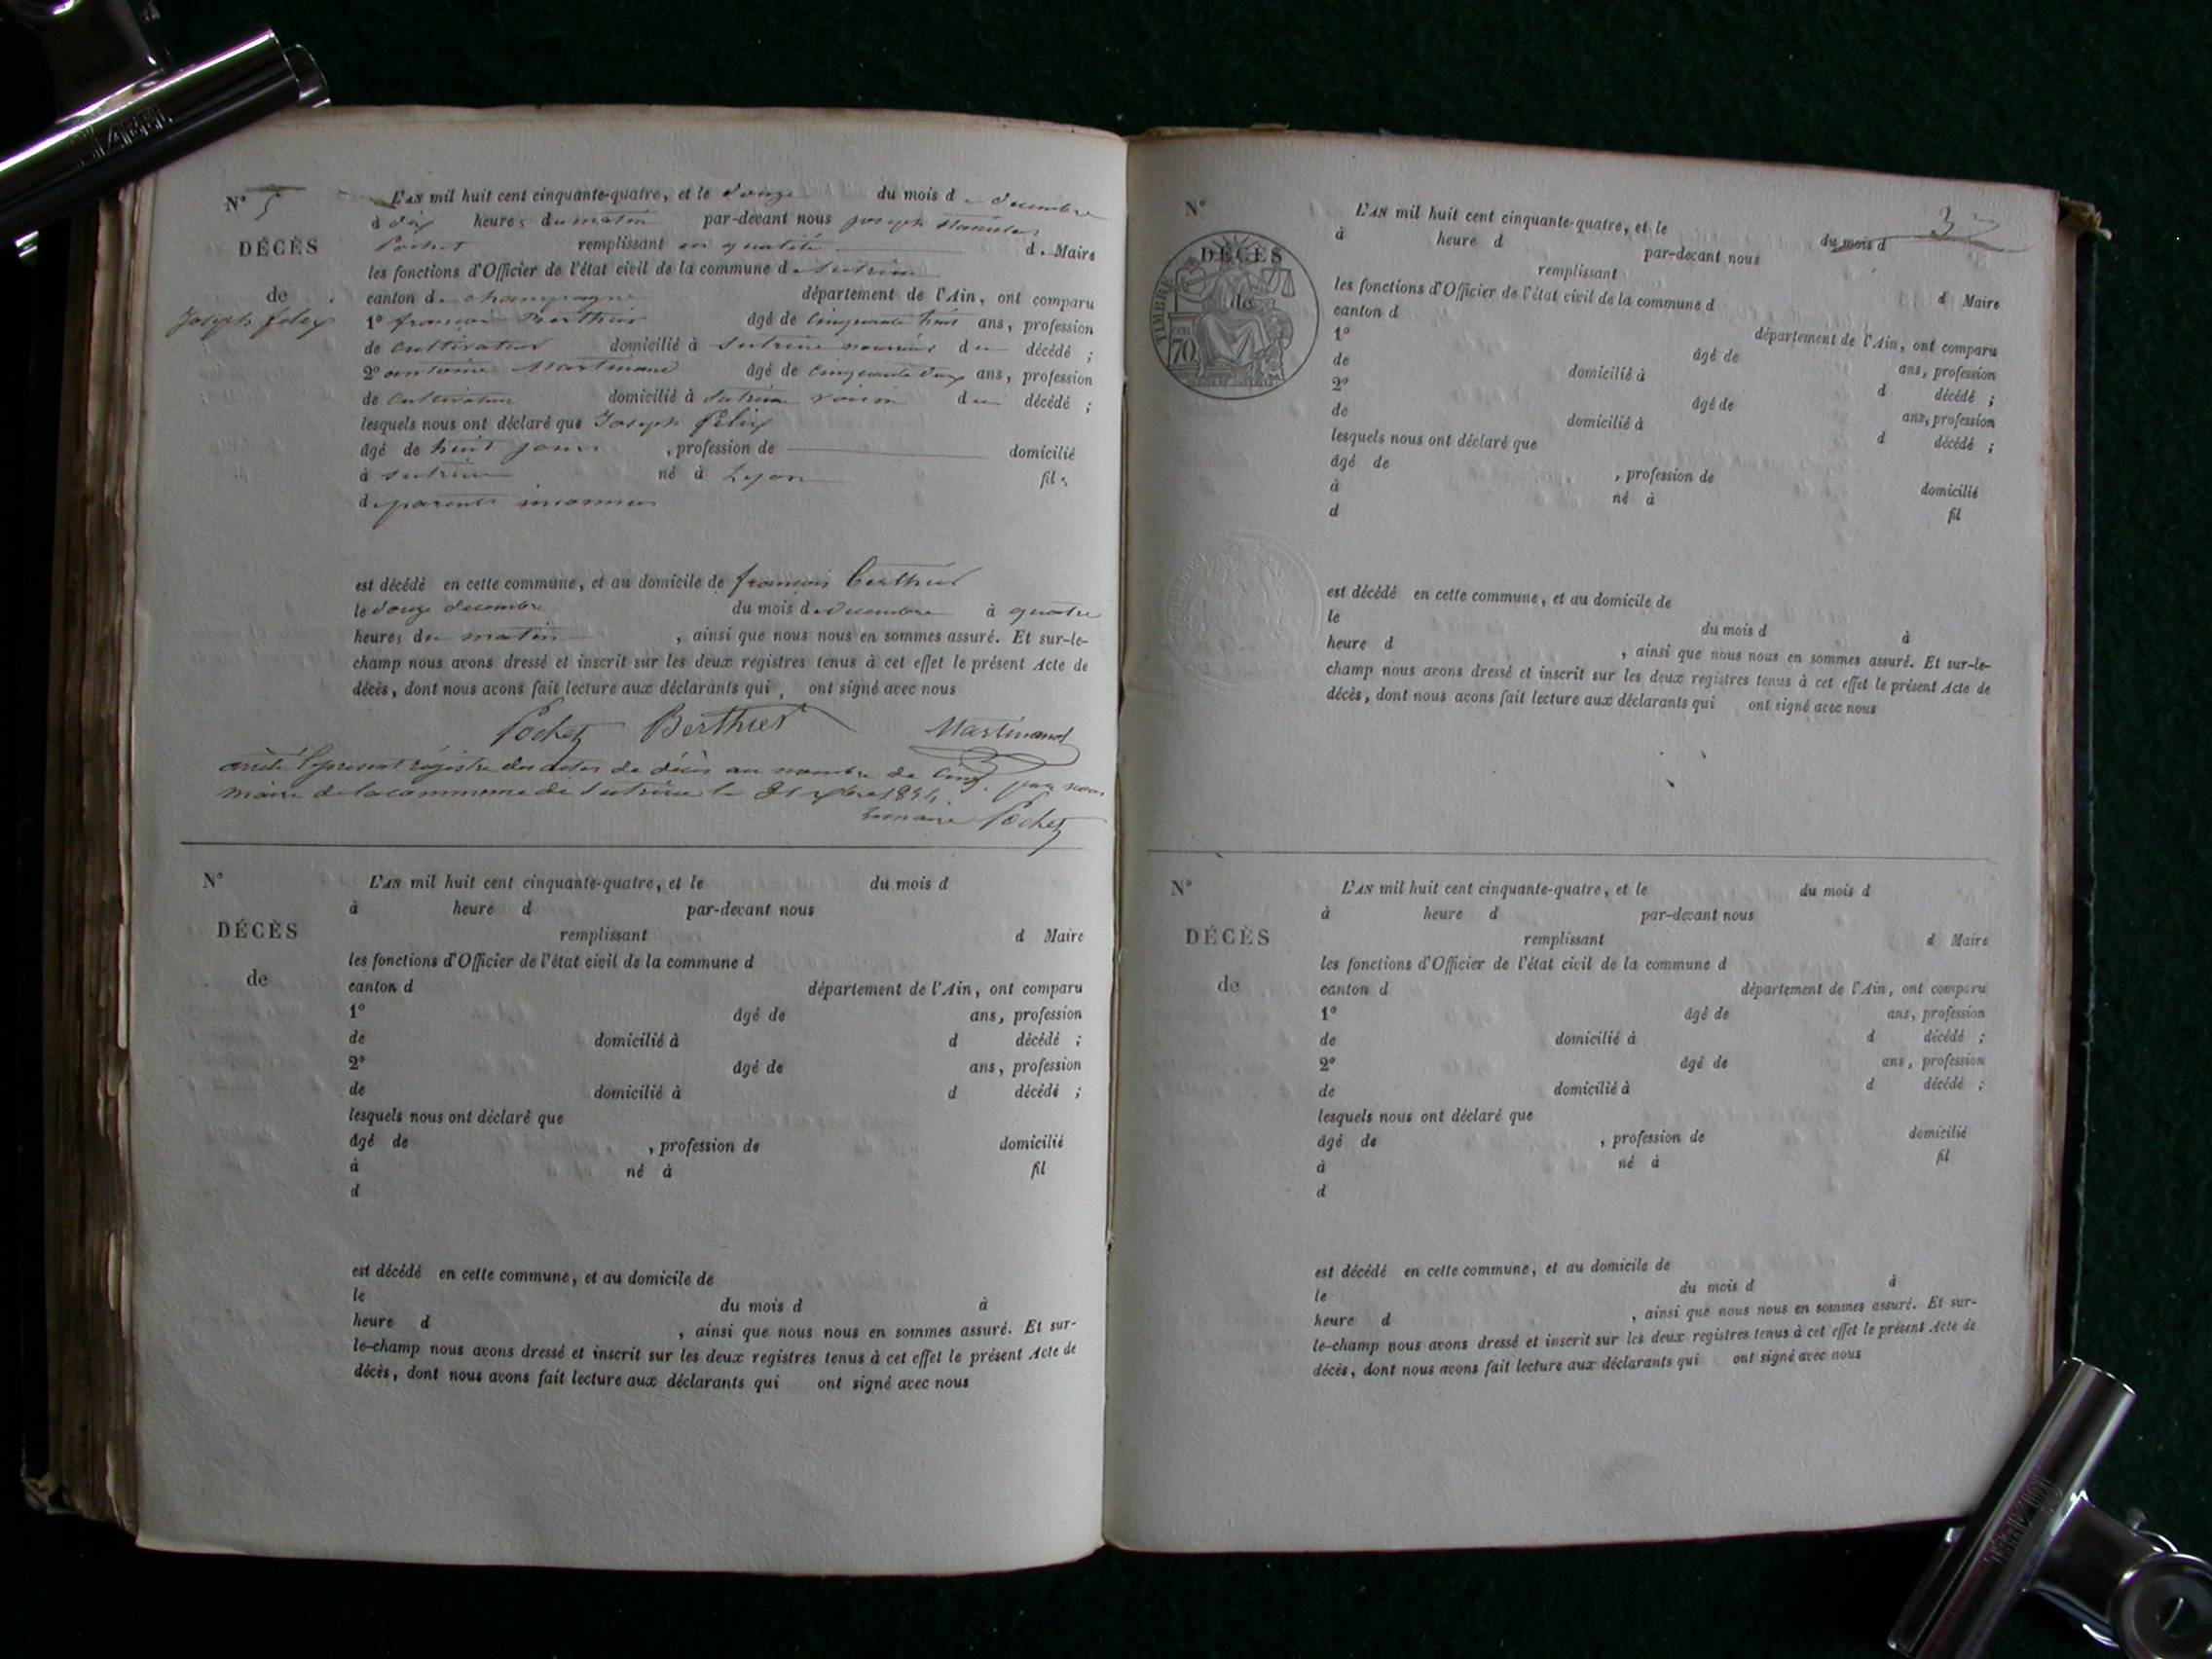 N° 5
DÉCÈS
de
Joseph felix
L'AN mil huit cent cinquante-quatre, et le douze du mois de decembre
à dix heures du matin par-devant nous joseph Stanislas
Pochet remplissant en qualité de Maire
les fonctions d'Officier de l'état civil de la commune de Sutrieu
canton de champagne département de l'Ain, ont comparu
1° francois Berthier âgé de cinquante huit ans, profession
de cultivateur domicilié à Sutrieu nourricier du décédé ;
2° antoine Martinand âgé de cinquante deux ans, profession
de cultivateur domicilié à Sutrieu voisin du décédé ;
lesquels nous ont déclaré que Joseph félix
âgé de huit jours , profession de domicilié
à Sutrieu né à Lyon fils
de parents inconnus
est décédé en cette commune, et au domicile de françois Berthier
le douze decembre du mois de decembre à quatre
heures du matin , ainsi que nous nous en sommes assuré. Et sur-le-
champ nous avons dressé et inscrit sur les deux registres tenus à cet effet le présent Acte de
décès, dont nous avons fait lecture aux déclarants qui ont signé avec nous
Pochet Berthier Martinand
arrêté le present régistre des actes de décès au nombre de cinq par nous
maire de la commune de Sutrieu le 31 xbre 1854.
le maire Pochet
N°
DÉCÈS
de
L'AN mil huit cent cinquante-quatre, et le du mois d
à heure d par-devant nous
remplissant d Maire
les fonctions d'Officier de l'état civil de la commune d
canton d département de l'Ain, ont comparu
1° âgé de ans, profession
de domicilié à d décédé ;
2° âgé de ans, profession
de domicilié à d décédé ;
lesquels nous ont déclaré que
âgé de , profession de domicilié
à né à fil
d
est décédé en cette commune, et au domicile de
le du mois d à
heure d , ainsi que nous nous en sommes assuré. Et sur-
le-champ nous avons dressé et inscrit sur les deux registres tenus à cet effet le présent Acte de
décès, dont nous avons fait lecture aux déclarants qui ont signé avec nous
3
N°
DÉCÈS
de
TIMBRE
70
L'AN mil huit cent cinquante-quatre, et le du mois d
à heure d par-devant nous
remplissant d Maire
les fonctions d'Officier de l'état civil de la commune d
canton d département de l'Ain, ont comparu
1° âgé de ans, profession
de domicilié à d décédé ;
2° âgé de ans, profession
de domicilié à d décédé ;
lesquels nous ont déclaré que
âgé de , profession de domicilié
à né à fil
d
est décédé en cette commune, et au domicile de
le du mois d à
heure d , ainsi que nous nous en sommes assuré. Et sur-le-
champ nous avons dressé et inscrit sur les deux registres tenus à cet effet le présent Acte de
décès, dont nous avons fait lecture aux déclarants qui ont signé avec nous
N°
DÉCÈS
de
L'AN mil huit cent cinquante-quatre, et le du mois d
à heure d par-devant nous
remplissant d Maire
les fonctions d'Officier de l'état civil de la commune d
canton d département de l'Ain, ont comparu
1° âgé de ans, profession
de domicilié à d décédé ;
2° âgé de ans, profession
de domicilié à d décédé ;
lesquels nous ont déclaré que
âgé de , profession de domicilié
à né à fil
d
est décédé en cette commune, et au domicile de
le du mois d à
heure d , ainsi que nous nous en sommes assuré. Et sur-
le-champ nous avons dressé et inscrit sur les deux registres tenus à cet effet le présent Acte de
décès, dont nous avons fait lecture aux déclarants qui ont signé avec nous